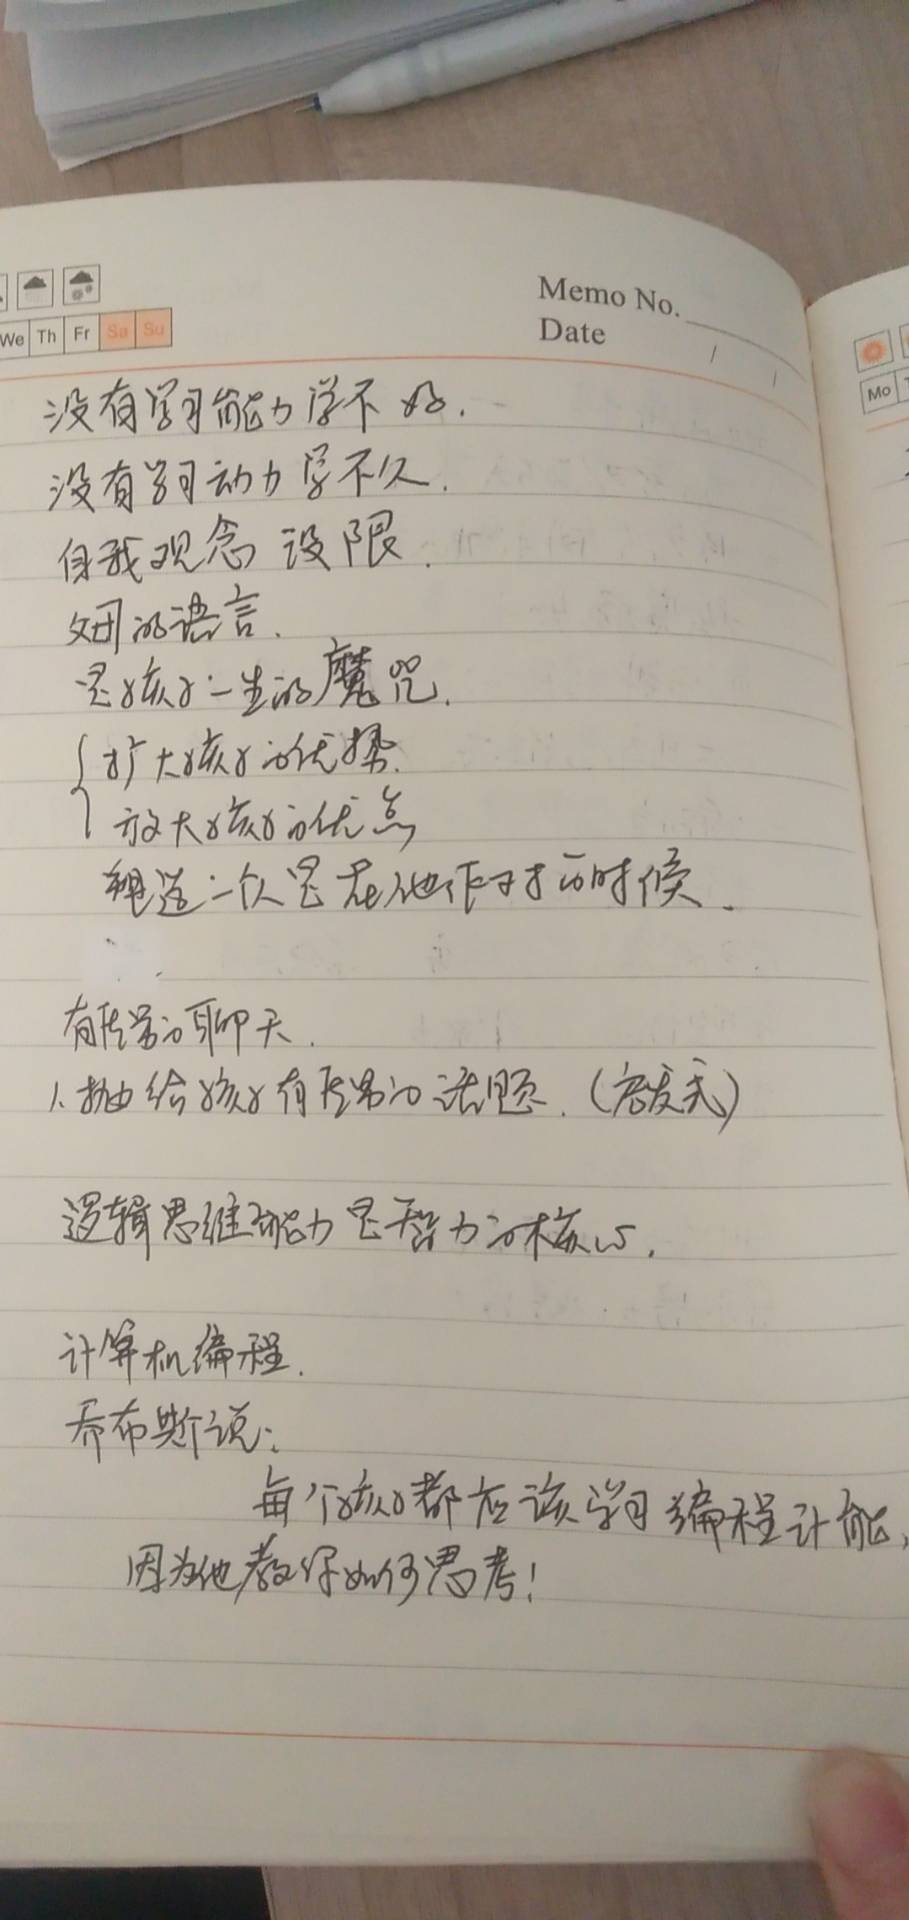 Memo No.
Date / /
We Th Fr Sa Su
Mo
没有学习能力学不好.
没有学习动力学不久.
自我观念 设限.
的语言.
是孩子一生的魔咒.
扩大孩子的优势.
放大孩子的优点
塑造一个人是在他作对事的时候.
有质量的聊天.
1.抽给孩子有质量的话题.(
逻辑思维能力是智力的核心.
计算机编程.
乔布斯说:
每个孩子都应该学习编程计能,
因为他教你如何思考!